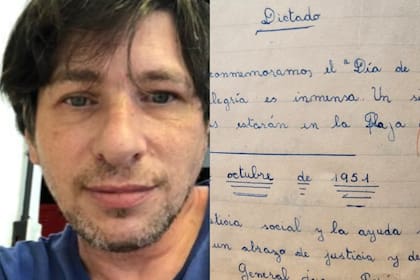 Dictado
conmemoramos el "Día de
legría es inmensa. Un si
s estarán en la plaza
octubre de 1951
ticia social y la ayuda
un abrazo de justicia y de
General